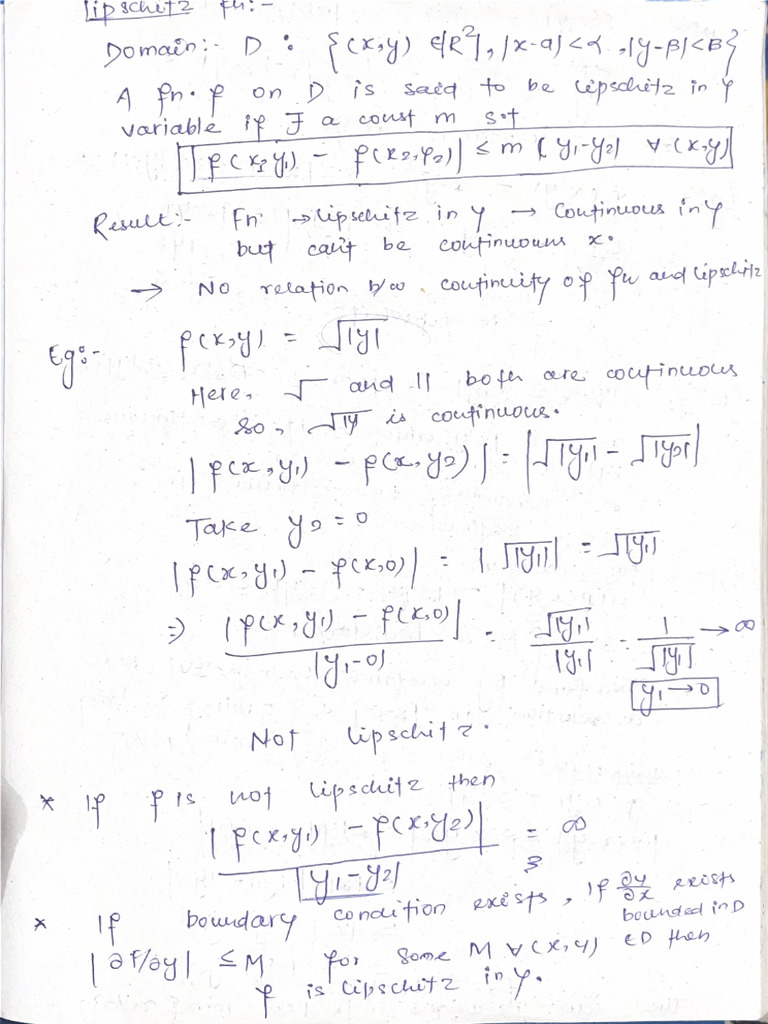 Lipschitz fn:-
Domain:- D : {(x,y) ∈ |R²|, |x-a|<α, |y-β|<B}
A fn. f on D is said to be lipschitz in y
variable if ∃ a const m s.t
|f(x₂y₁) - f(x₂,y₂)| ≤ m |y₁-y₂| ∀ (x,y)
Result:- Fn. → lipschitz in y → continuous in y
but can't be continuous x.
→ No relation b/w continuity of fn and lipschitz
Eg:- f(x,y) = √|y|
Here, √ and || both are continuous
So, √|y is continuous.
|f(x,y₁) - f(x,y₂)| = |√|y₁| - √|y₂||
Take y₂=0
|f(x,y₁) - f(x,0)| = |√|y₁|| = √|y₁|
⇒ |f(x,y₁) - f(x,0)| / |y₁-0| = √|y₁| / |y₁| - 1/√|y₁| → ∞
y₁→0
Not lipschitz.
* If f is not lipschitz then
|f(x,y₁) - f(x,y₂)| / |y₁-y₂| = ∞
* If boundary condition exists, If ∂y/∂x exists
bounded in D
|∂F/∂y| ≤ M for some M ∀ (x,y) ∈D then
f is lipschitz in y.